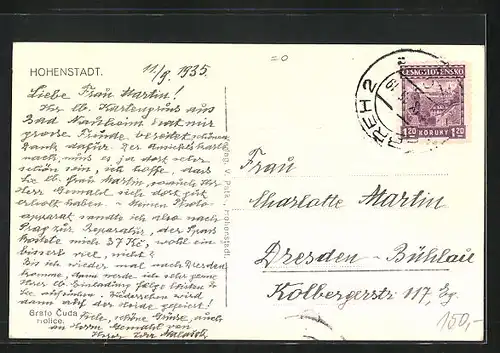 HOHENSTADT.
11/9. 1935.
Liebe Frau Martin!
Ihr lb. Kartengruss aus
Bad Nauheim hat mir
grosse Freude bereitet, schönen
Dank dafür. Der Ansichtskarte
nach, muss es ja dort sehr
schön sein, ich hoffe, dass
Sie lb. Frau Martin, sowie Ihr
Herr Gemahl sich dort gut
erholt haben. - Meinen Photo-
apparat sandte ich also nach
Prag zur Reparatur, der Spass
kostete mich 37 Kč, wohl ein
bisserl viel, nicht?
Bis ich wieder mal nach Dresden
komme, dann werde ich sehr gerne
Ihrer lb. Einladung folge leisten &
Sie aufsuchen. Wiedersehen wird
dann auf der gefeiert!
Viele, schöne Grüsse, auch
an Herrn Gemahl von
Ihrer
Grafo Čuda
Holice.
Hohenstadt.
ČESKOSLOVENSKO
1.20 KORUNY 1.20
2
Frau
Charlotte Martin
Dresden - Bühlau
Kolbergerstr. 117, Eg.
150,-